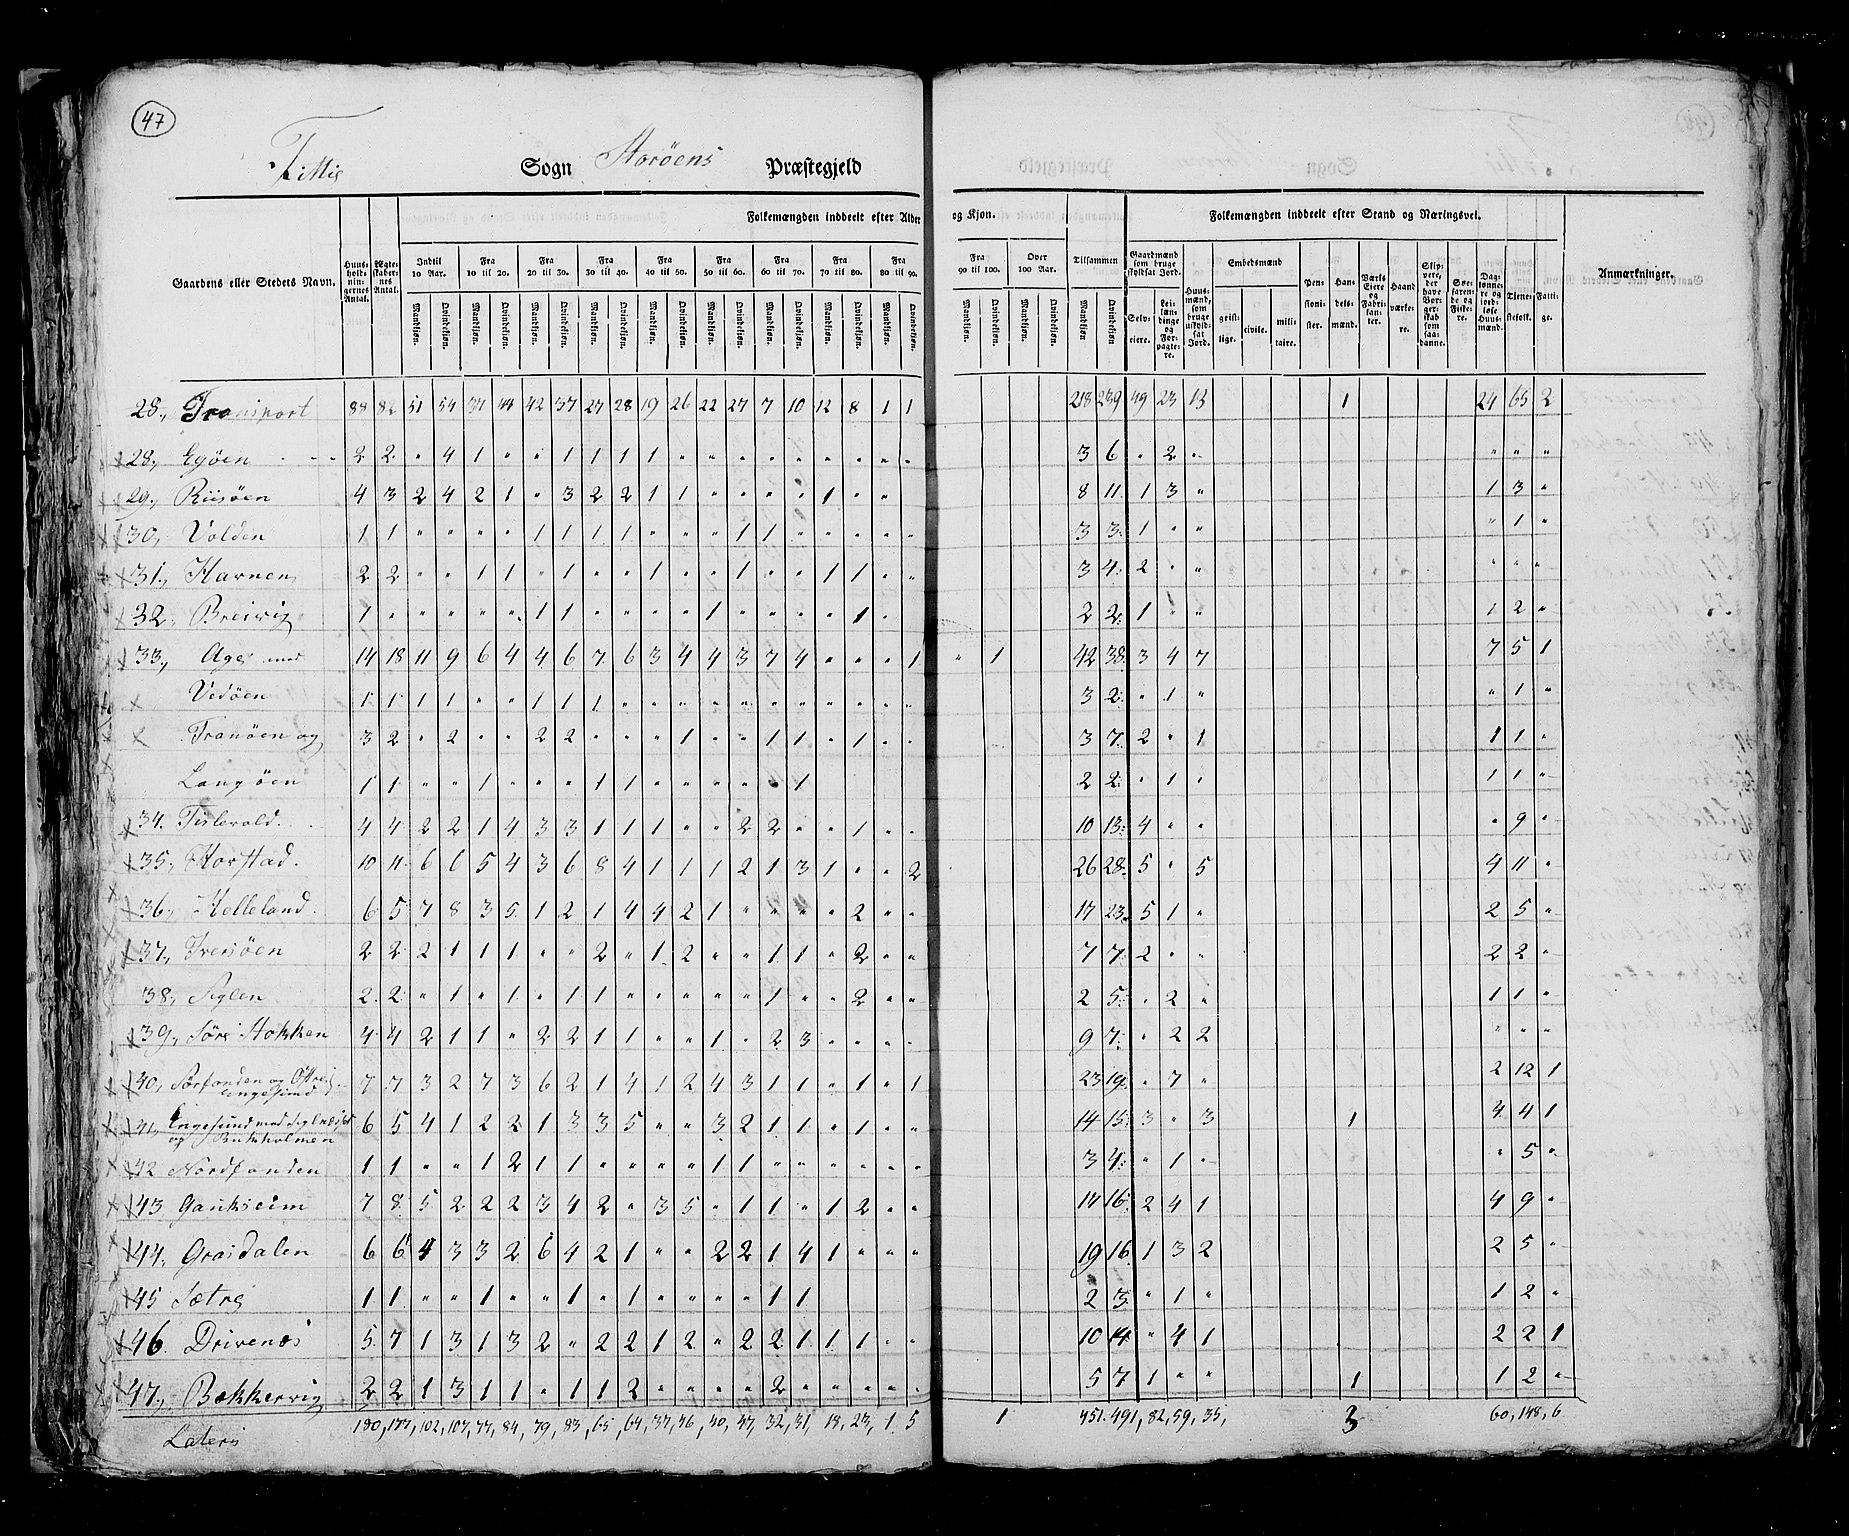 47
Fittie Sogn Storöens Præstegjeld
Folkemængden inddeelt efter Alder og Kjøn.
Folkemængden inddeelt efter Stand og Næringsvei.
Gaardens eller Stedets Navn.
Huus-holdnin-gernes Antal.
Ægte-skaber-nes Antal.
Indtil 10 Aar.
Fra 10 til 20.
Fra 20 til 30.
Fra 30 til 40.
Fra 40 til 50.
Fra 50 til 60.
Fra 60 til 70.
Fra 70 til 80.
Fra 80 til 90.
Fra 90 til 100.
Over 100 Aar.
Tilsammen
Mandkjøn. Qvindekjøn.
Gaardmænd som bruge skyldsat Jord.
Selv-eiere.
Lei-læn-dinge og For-pagte-re.
Huus-mænd, som bruge uskyld-sat Jord.
Embedsmænd
geist-lige.
civile.
mili-taire.
Pen-sioni-ster.
Han-dels-mænd.
Værks Eiere og Fabri-kan-ter.
Haand værke-re.
Skip-pere, der have Bor-ger-skab som saa-danne.
Søe-faren-de og Fiske-re.
Dag-lønne-re og jord-løse Huus-mænd.
Tiene-stefolk.
Fatti-ge.
Anmærkninger.
28., Transport 88 82 51 54 31 44 42 37 27 28 19 26 22 27 7 10 12 8 1 1 218 239 49 23 13 1 24 65 2
28., Egöen 2 2 " 4 1 " " 1 1 1 1 1 " " " " " " " " 3 6 " 2 " " " "
29., Riisöen 4 3 2 4 2 1 " 3 2 2 1 1 " " " " 1 " " 8 11 1 3 " 1 3 "
30., Volden 1 1 " " " " 1 1 1 1 " " " 1 1 " " " " " 3 3 1 " " " 1 "
31., Havnen 2 2 " " 1 1 " 1 " " 1 " " 1 " " 1 1 " " 3 4 2 " " " " "
32., Breivig 1 " " " " " 1 1 " " " " 1 " " " " 1 " 2 2 1 " " 1 2 "
33., Age med 14 18 11 9 6 4 4 6 7 6 3 4 4 3 7 4 " " " 1 " 1 42 38 3 4 7 7 5 1
Vedöen 1 1 1 1 " " 1 1 1 " " " " " " " " " " " 3 2 " 1 " " 1 "
Tranöen og 3 2 " 2 " " 2 2 " " " 1 " " 1 1 " 1 " " 3 7 2 " 1 1 1 "
Langöen 1 1 " " 1 " " " 1 1 " " " " " 1 2 2 " 1 " 1 1 "
34. Tislevold 4 4 2 2 1 4 3 3 1 1 1 " " 2 2 " " 1 " " 10 13 4 " " " 9 "
35., Korstad. 10 11 6 6 5 4 3 6 8 4 1 1 1 2 1 3 1 " " 2 26 28 5 " 5 4 11 "
36., Helleland. 6 5 7 8 3 5 1 2 1 4 4 2 1 " " " " 2 " " 17 23 5 1 " 2 5 "
37., Iversöen 2 2 2 1 1 1 " " 2 " 1 2 " " 1 1 " 2 " " 7 7 2 " " 2 2 "
38., Siglen 2 2 " 1 " 1 " 1 1 " " " " " 1 " " 2 " " 2 5 " 2 " 1 1 "
39., Söre Stokken 4 4 2 1 1 " 2 2 1 1 " " 1 " 2 3 " " " " 9 7 " 2 2 " " "
40., Sörfonden og Östre Engesund 7 7 3 2 7 3 6 2 1 4 1 2 4 3 1 1 " 1 " 1 23 19 " 7 " 2 12 1
41., Engesund med Siglnæsset og Bukholmen 6 5 4 1 2 2 1 3 3 5 " " 3 2 1 1 " 1 " " 14 15 3 " 3 1 4 4 1
42 Nordfonden 1 1 " " 1 2 1 1 " " " " 1 1 " " " " " " 3 4 " 1 " " 5 "
43 Gaukseim 7 8 5 2 2 2 3 4 2 " 3 5 " 1 1 " 1 2 " " 17 16 2 4 1 4 9 "
44., Grasdalen 6 6 4 3 3 2 6 4 2 1 " " 2 2 1 4 1 " " " 19 16 1 3 2 2 5 "
45 Sætre 1 1 " " 1 " " 1 " 1 " " " " 1 1 2 3 " 1 " 1 2 "
46. Drivenæs 5 7 1 3 1 3 2 " 2 2 1 2 " 2 2 1 1 1 " " 10 14 " 4 1 2 2 1
47., Bækkervig 2 2 1 3 1 1 " 1 1 2 " " " " 2 " " " " " 5 7 1 " " 1 1 2 "
Lateris 180, 177, 102, 107, 77, 84, 79, 83, 65, 64, 37, 46, 40, 47, 32, 31, 18, 23, 1 5 1 451. 491, 82, 59, 35, 3 60, 148, 6